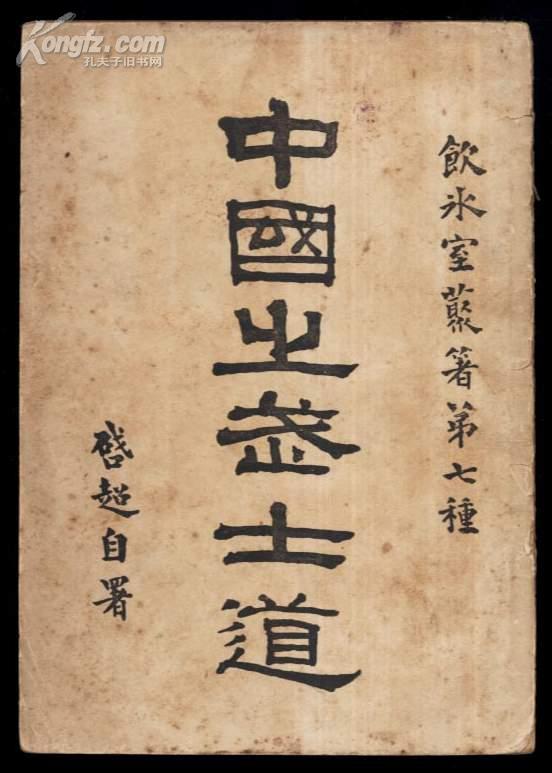 Kongfz.com
孔夫子旧书网
飲氷室藂著第七種
中國之武士道
啓超自署